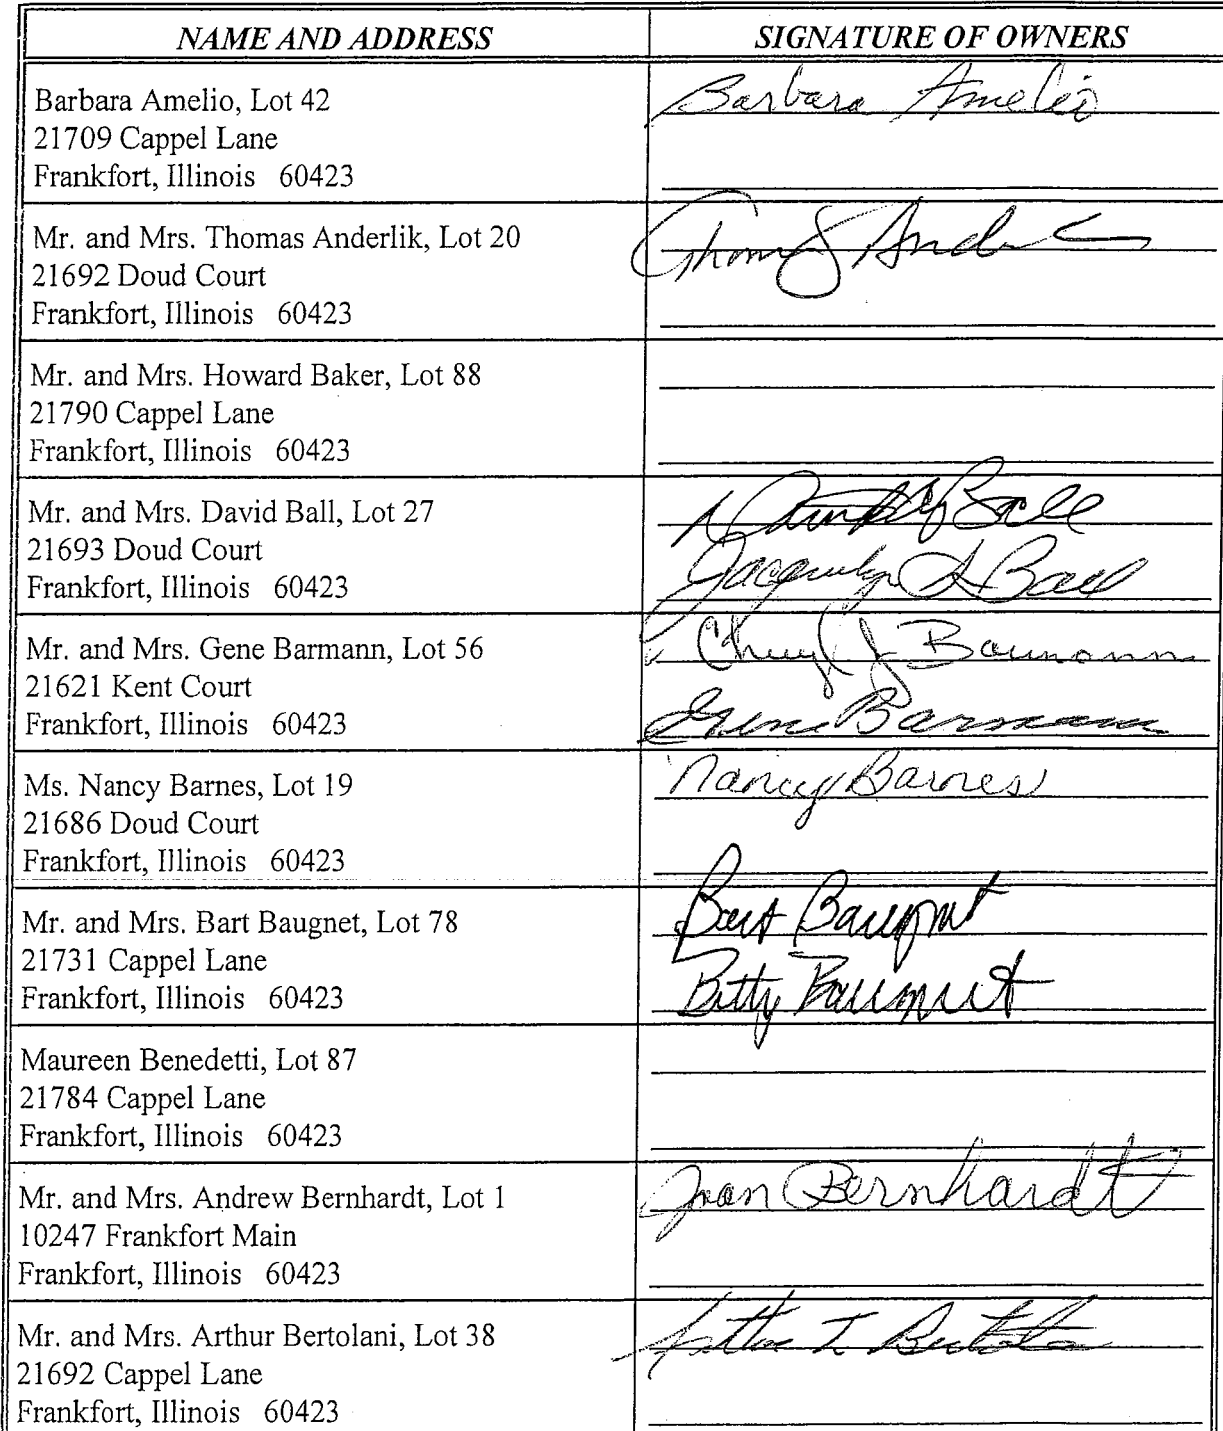 NAME AND ADDRESS SIGNATURE OF OWNERS
Barbara Amelio, Lot 42
21709 Cappel Lane
Frankfort, Illinois 60423
Barbara Amelio
Mr. and Mrs. Thomas Anderlik, Lot 20
21692 Doud Court
Frankfort, Illinois 60423
Mr. and Mrs. Howard Baker, Lot 88
21790 Cappel Lane
Frankfort, Illinois 60423
Mr. and Mrs. David Ball, Lot 27
21693 Doud Court
Frankfort, Illinois 60423
Ball
Jacquelyn A Ball
Mr. and Mrs. Gene Barmann, Lot 56
21621 Kent Court
Frankfort, Illinois 60423
Cheryl J Barmann
Gene Barmann
Ms. Nancy Barnes, Lot 19
21686 Doud Court
Frankfort, Illinois 60423
Nancy Barnes
Mr. and Mrs. Bart Baugnet, Lot 78
21731 Cappel Lane
Frankfort, Illinois 60423
Bart Baugnet
Betty Baugnet
Maureen Benedetti, Lot 87
21784 Cappel Lane
Frankfort, Illinois 60423
Mr. and Mrs. Andrew Bernhardt, Lot 1
10247 Frankfort Main
Frankfort, Illinois 60423
Joan Bernhardt
Mr. and Mrs. Arthur Bertolani, Lot 38
21692 Cappel Lane
Frankfort, Illinois 60423